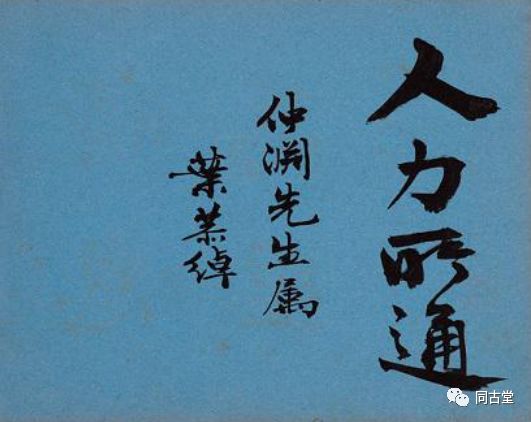 人力所通
仲渊先生属
葉恭綽
同古堂